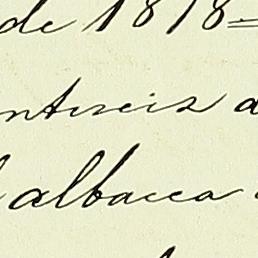 de 1818=
ntiseis d
albacea